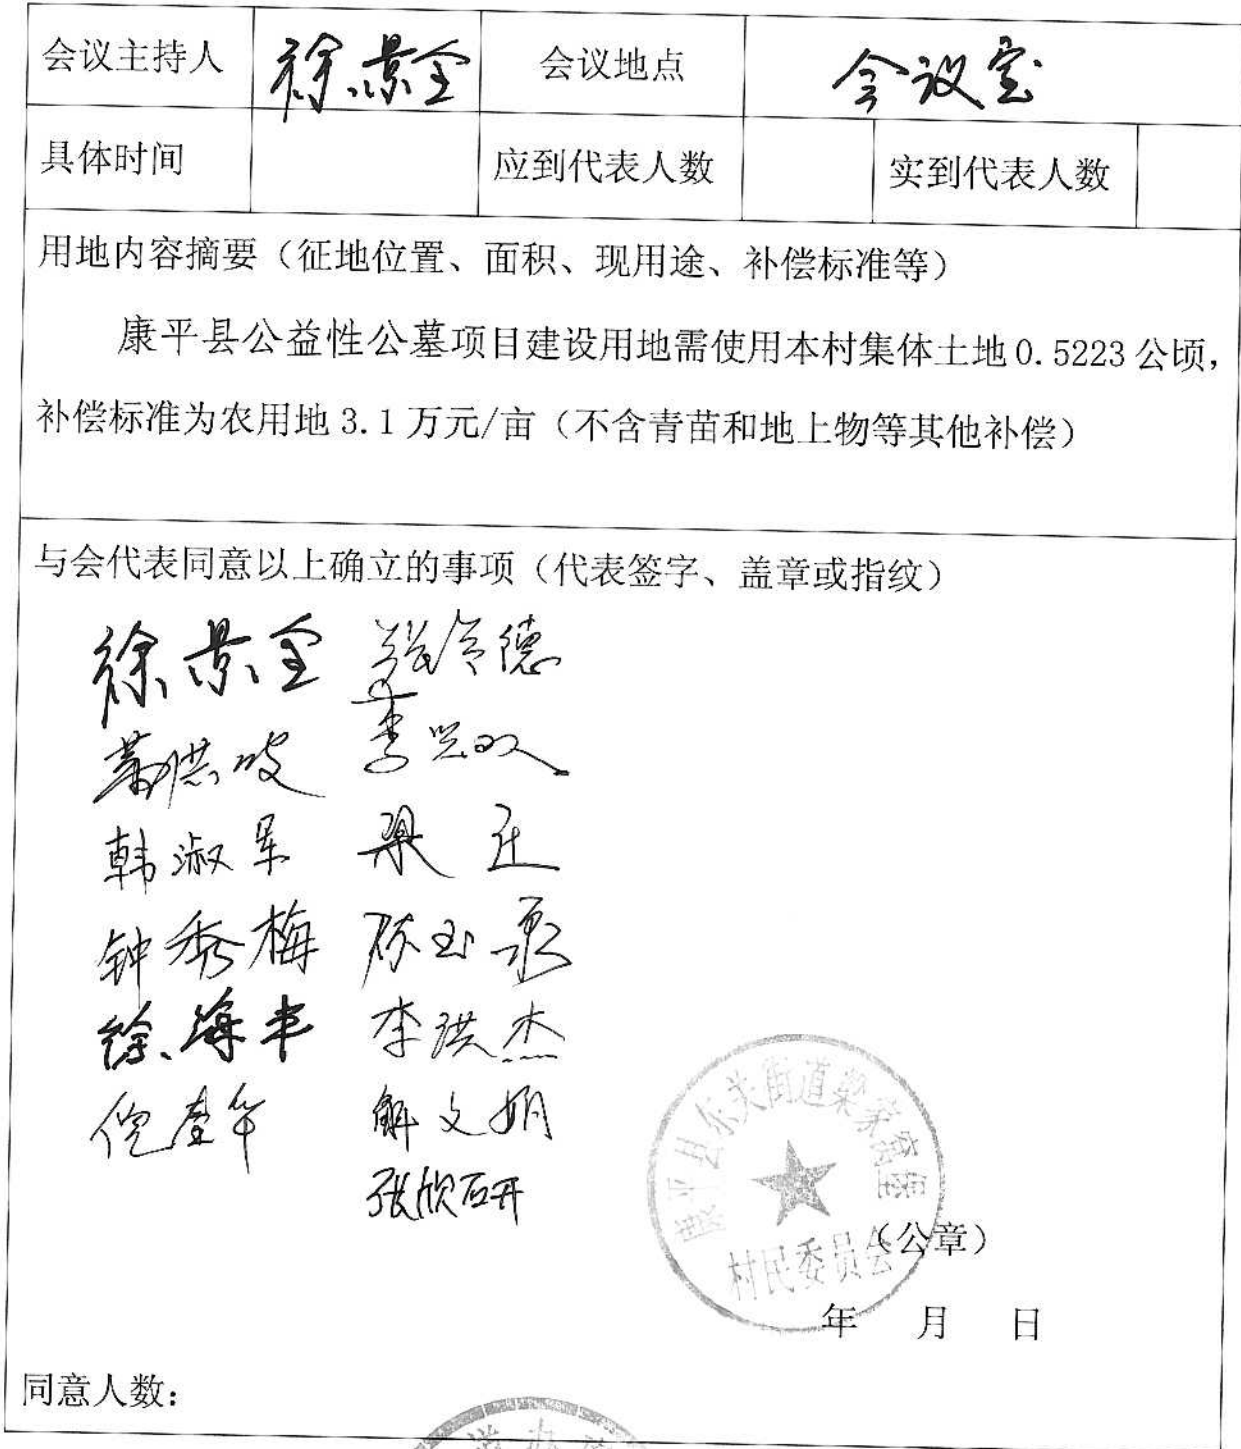 会议主持人 徐景全 会议地点 会议室
具体时间 应到代表人数 实到代表人数
用地内容摘要（征地位置、面积、现用途、补偿标准等）
康平县公益性公墓项目建设用地需使用本村集体土地0.5223公顷，
补偿标准为农用地3.1万元/亩（不含青苗和地上物等其他补偿）
与会代表同意以上确立的事项（代表签字、盖章或指纹）
徐景全 德
李兴双
韩淑军 梁
钟秀梅 陈玉
徐海丰 李洪杰
倪 华 解文娟
张欣研
康平县东关街道梁家窝堡
村民委员会
（公章）
年 月 日
同意人数：
道办